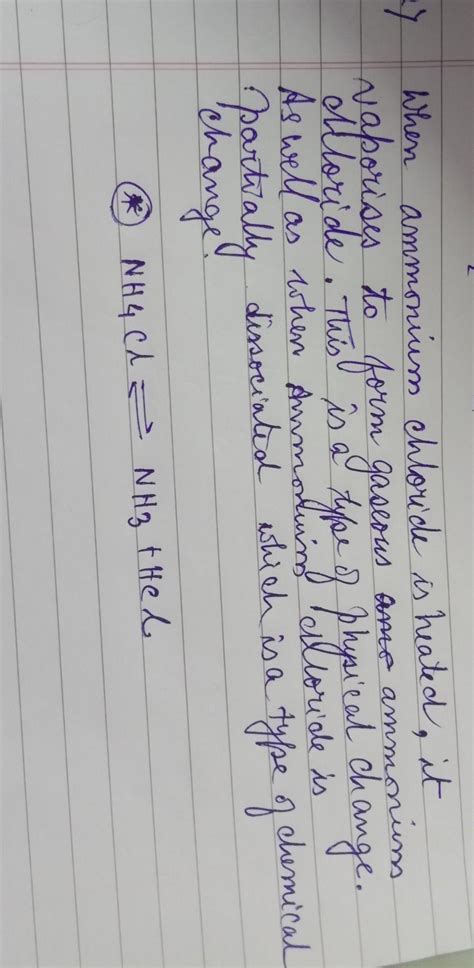 When ammonium chloride is heated, it
vaporises to form gaseous ammonium
chloride. This is a type of physical change.
As well as when Ammonium chloride is
partially dissociated which is a type of chemical
change.
* NH4Cl ⇌ NH3 + HCl